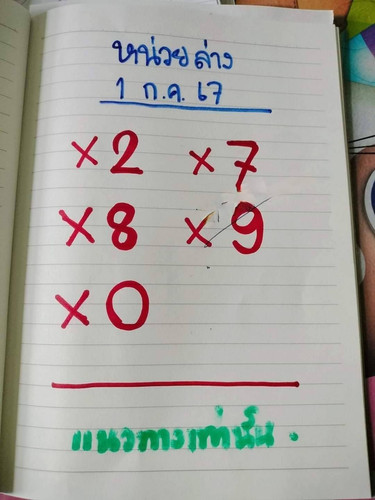 หน่วยล่าง
1 ก.ค. 67
×2 ×7
×8 ×9
×0
แนวทางเท่านั้น.